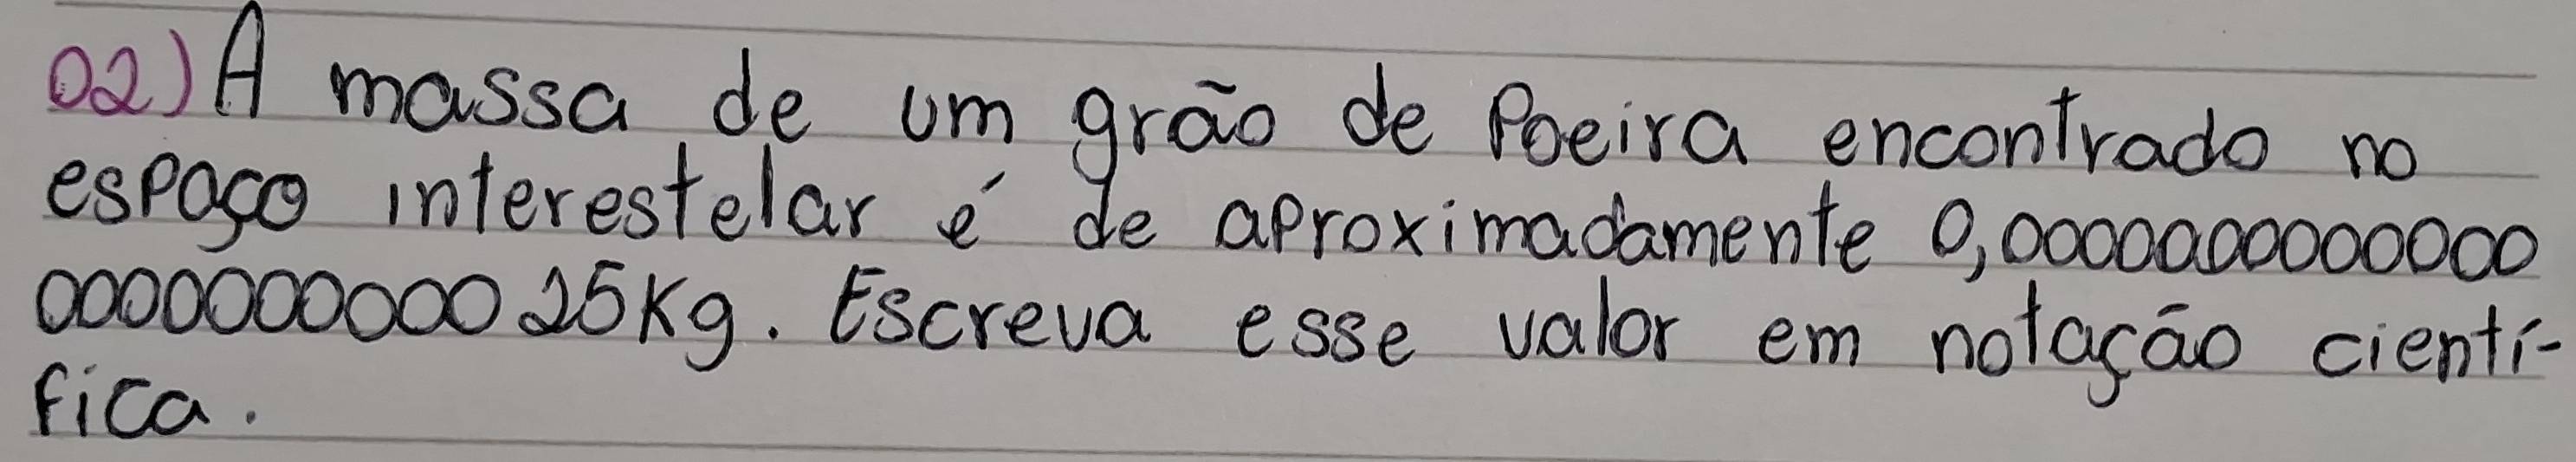 02) A massa de um grão de Poeira encontrado no
espaço interestelar é de aproximadamente 0,00000000000000
00000000000 25Kg. Escreva esse valor em notação cientí-
fica.